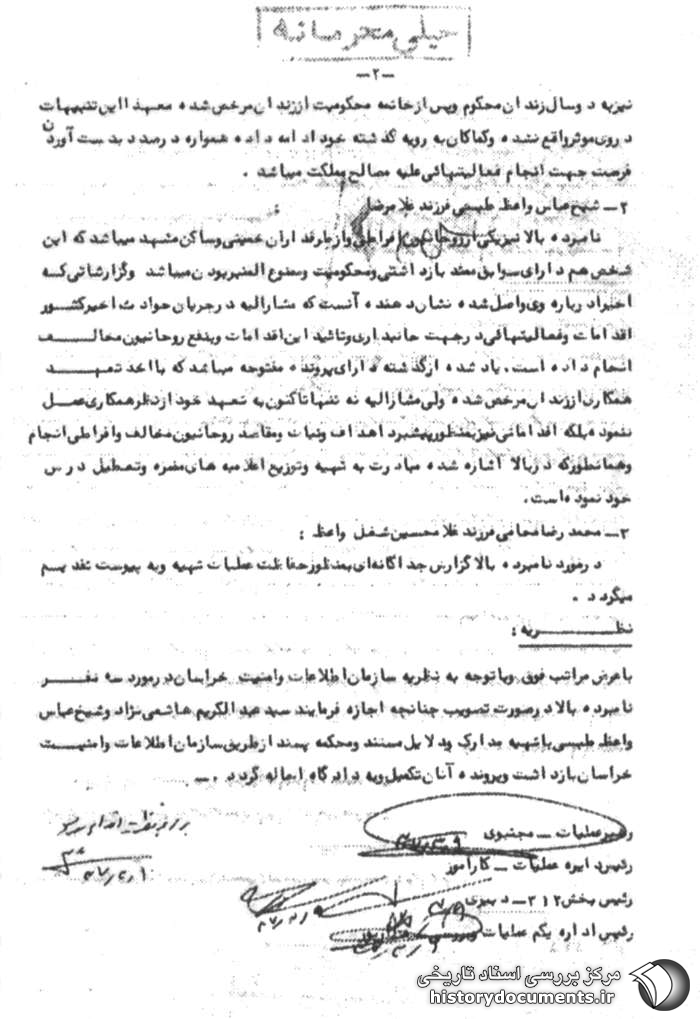 خیلی محرمانه
-۲-
نیز به د وسال زند ان محکوم وپس از خاتمه محکومیت از زند ان مرخص شد ه معهذ ا این تنبیهات
د روی موثر واقع نشد ه وکماکان به رویه گذ شته خود اد امه د اد ه همواره د رصد د بد ست آورد ن
فرصت جهت انجام فعالیتهائی علیه مصالح مملکت میباشد .
۲- شیخ عباس واعظ طبسی فرزند غلامرضا :
نامبرد ه بالا نیزیکی از روحانیون افراطی واز طرفد اران خمینی وساکن مشهد میباشد که این
شخص هم د ارای سوابق متعد د بازد اشتی ومحکومیت وممنوع المنبر بود ن میباشد وگزارشاتی که
اخیراد رباره وی واصل شد ه نشان د هند ه آنست که مشارالیه د رجریان حواد ث اخیر کشور
اقد امات وفعالیتهائی د رجهت جانبد اری وتائید این اقد امات وبنفع روحانیون مخالف
انجام د اد ه است، یاد شد ه ازگذ شته د ارای پروند ه مفتوحه میباشد که با اخذ تعهد
همکاری از زند ان مرخص شد ه ولی مشارالیه نه تنها تاکنون به تعهد خود از نظر همکاری عمل
ننمود ه بلکه اقد اماتی نیز بمنظور پیشبرد اهد اف ونیات ومقاصد روحانیون مخالف وافراطی انجام
وهمانطورکه د ربالا اشاره شد ه مباد رت به تهیه وتوزیع اعلامیه های مضره وتعطیل د رس
خود نمود ه است .
۳- محمد رضا محامی فرزند غلامحسین شغل واعظ :
د رمورد نامبرد ه بالا گزارش جد اگانه ای بمنظور حفاظت عملیات تهیه وبه پیوست تقد یم
میگرد د .
نظریه :
با عرض مراتب فوق وبا توجه به نظریه سازمان اطلاعات وامنیت خراسان د رمورد سه نفر
نامبرد ه بالا د رصورت تصویب چنانچه اجازه فرمایند سید عبد الکریم هاشمی نژاد وشیخ عباس
واعظ طبسی با تهیه مد ارک ود لایل مستند ومحکمه پسند از طریق سازمان اطلاعات وامنیت
خراسان بازد اشت وپروند ه آنان تکمیل وبه د اد گاه احاله گرد د .-
رهبر عملیات - مجتبوی
رئیس د ایره عملیات - کارآموز
رئیس بخش ۳۱۲- د بیری
رئیس اد اره یکم عملیات
مرکز بررسی اسناد تاریخی
historydocuments.ir